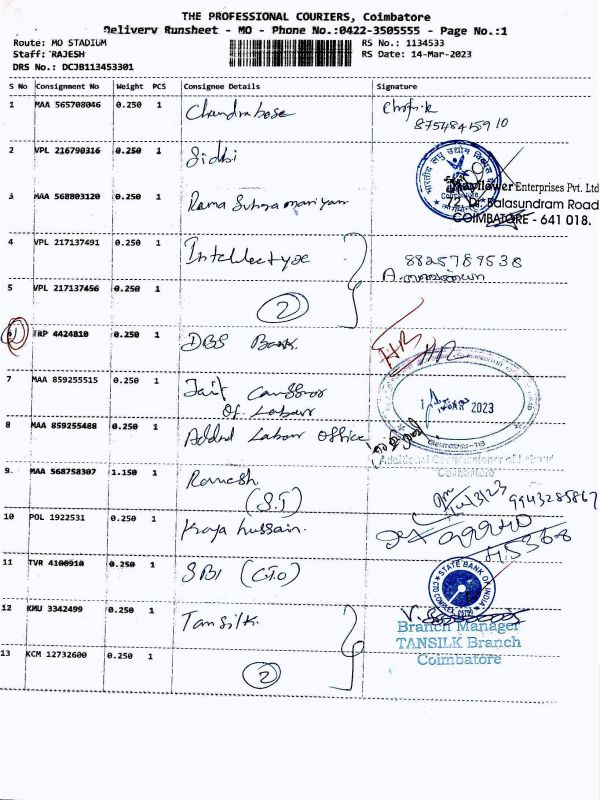 THE PROFESSIONAL COURIERS, Coimbatore
Delivery Runsheet - MO - Phone No.:0422-3505555 - Page No.:1
Route: MO STADIUM
RS No.: 1134533
Staff: RAJESH
RS Date: 14-Mar-2023
DRS No.: DCJB113453301
S No Consignment No Weight PCS Consignee Details Signature
1 MAA 565708046 0.250 1 Chandrabose
2 VPL 216790316 0.250 1 Sidbi
Mayflower Enterprises Pvt. Ltd
3 MAA 568803120 0.250 1 Rama Subramaniyam
72, Dr. Balasundram Road
COIMBATORE - 641 018.
4 VPL 217137491 0.250 1
8825789538
5 VPL 217137456 0.250 1
2
6 TRP 4424810 0.250 1 DBS Bank
7 MAA 859255515 0.250 1
Of Labour
2023
8 MAA 859255488 0.250 1 Labour Office
Coimbatore
9 MAA 568758307 1.150 1 Ramesh
(S.T)
9943285867
10 POL 1922531 0.250 1 Raja hussain.
11 TVR 4100910 0.250 1 SBI (CTO)
STATE BANK OF INDIA
12 KMU 3342499 0.250 1 Tansilk.
Branch Manager
TANSILK Branch
Coimbatore
13 KCM 12732600 0.250 1
2